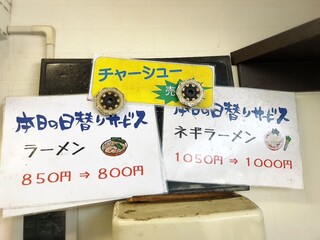 チャーシュー
売
本日の日替りサービス
ラーメン
850円 ⇒ 800円
本日の日替りサービス
ネギラーメン
1050円 ⇒ 1000円